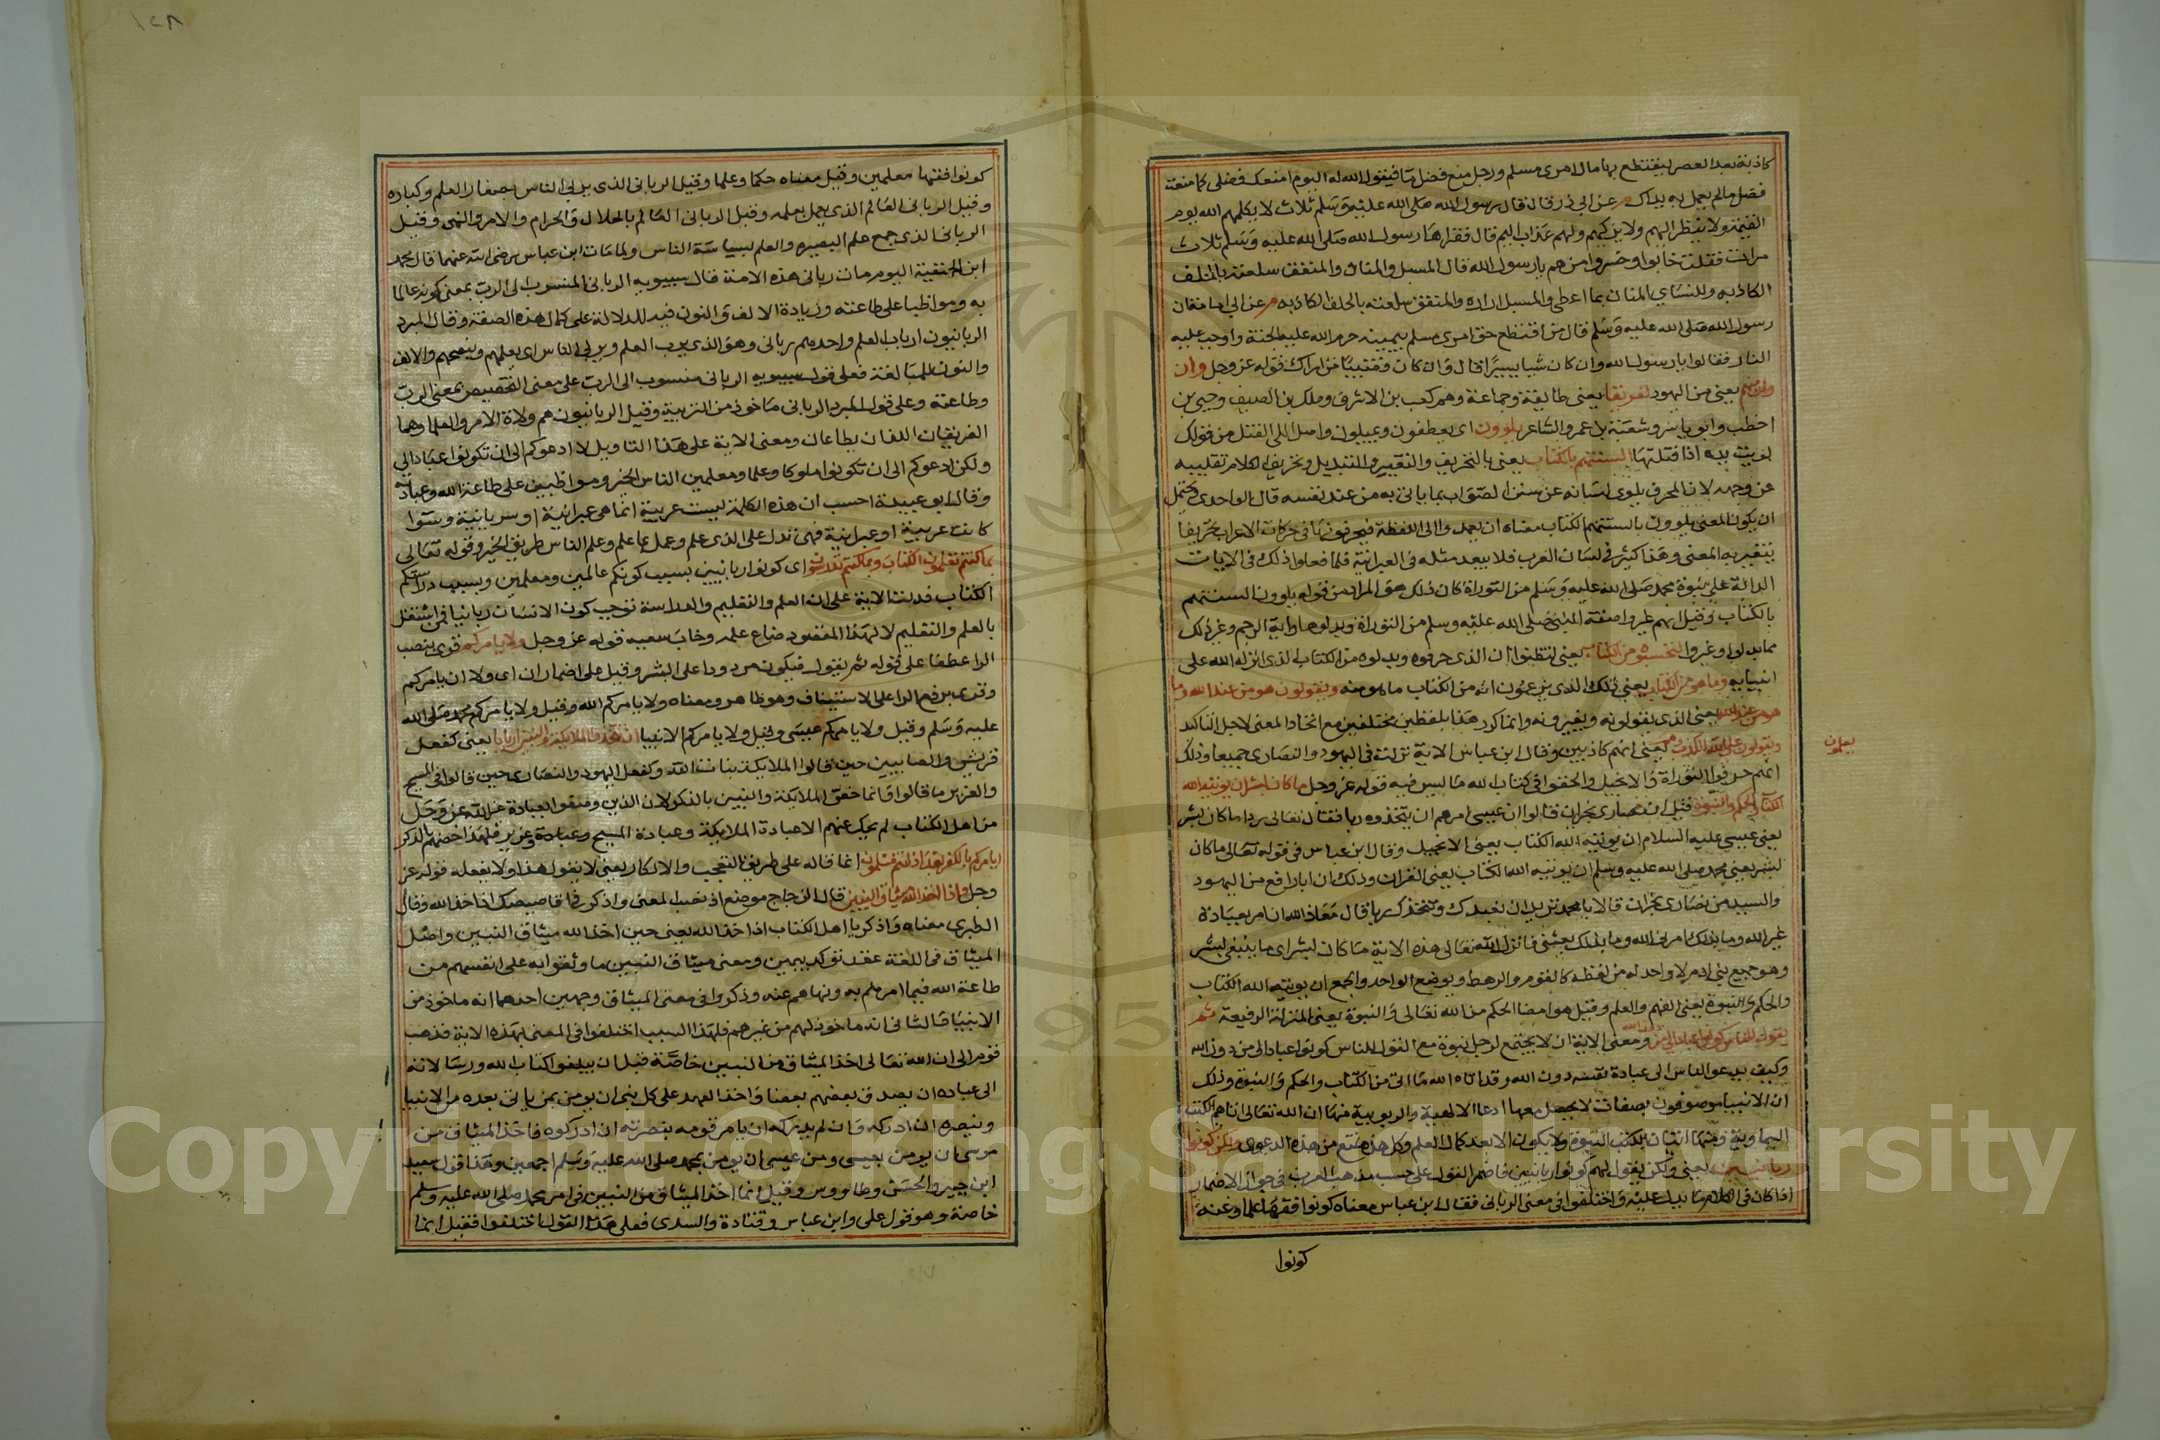 كاذبة بعد العصر ليقتطع بها مال امرئ مسلم ورجل منع فضل ماء فيقول الله له اليوم امنعك فضلي كما منعت
فضل مالم يعمل به يداك م عن ابي ذر قال قال رسول الله صلى الله عليه وسلم ثلاث لا يكلمهم الله يوم
القيمة ولا ينظر اليهم ولا يزكيهم ولهم عذاب اليم قال فقراها رسول الله صلى الله عليه وسلم ثلاث
مرات فقلت خابوا وخسروا من هم يا رسول الله قال المسبل والمنان والمنفق سلعته بالحلف
الكاذبة وللنسائي المنان بما اعطى والمسبل ازاره والمنفق سلعته بالحلف الكاذبة م عن ابي امامة ان
رسول الله صلى الله عليه وسلم قال من اقتطع حق امرئ مسلم بيمينه حرم الله عليه الجنة واوجب عليه
النار فقالوا يا رسول الله وان كان شيا يسيرا قال وان كان قضيبا من اراك قوله عز وجل وان
منهم يعني من اليهود لفريقا يعني طايفة وجماعة وهم كعب بن الاشرف ومالك بن الصيف وحيي بن
اخطب وابو ياسر وشعبة بن عمرو الشاعر يلوون اي يعطفون ويميلون واصل اللي الفتل من قولك
لويت يده اذا فتلتها السنتهم بالكتاب يعني بالتحريف والتغيير والتبديل وتحريف الكلام تقليبه
عن وجهه لان المحرف يلوي لسانه عن سنن الصواب بما ياتي به من عند نفسه قال الواحدي ويحتمل
ان يكون المعنى يلوون بالسنتهم الكتاب معناه ان يعمد والى اللفظة فيحرفونها في حركات الاعراب تحريفا
يتغير به المعنى وهذا كثير في لسان العرب فلا يبعد مثله في العبرانية فلما فعلوا ذلك في الايات
الدالة على نبوة محمد صلى الله عليه وسلم من التوراة كان ذلك هو المراد من قوله يلوون السنتهم
بالكتاب وقيل انهم غيروا صفة النبي صلى الله عليه وسلم من التوراة وبدلوها واية الرجم وغير ذلك
مما بدلوا وغيروا لتحسبوه من الكتاب يعني لتظنوا ان الذي حرفوه وبدلوه من الكتاب الذي انزله الله على
انبيايه وما هو من الكتاب يعني ذلك الذي يزعمون انه من الكتاب ما هو منه ويقولون هو من عند الله وما
هو من عند الله يعني الذي يقولونه ويغيرونه وانما كرر هذا بلفظين مختلفين مع اتحاد المعنى لاجل التاكيد
ويقولون على الله الكذب وهم يعني انهم كاذبين وقال ابن عباس الاية نزلت في اليهود والنصارى جميعا وذلك
يعلمون
انهم حرفوا التوراة والانجيل والحقوا في كتاب الله ما ليس فيه قوله عز وجل ما كان لبشر ان يوتيه الله
الكتاب والحكم والنبوة قيل ان نصارى نجران قالوا ان عيسى امرهم ان يتخذوه ربا فقال تعالى ردا ما كان لبشر
يعني عيسى عليه السلام ان يوتيه الله الكتاب يعني الانجيل وقال ابن عباس في قوله تعالى ما كان
لبشر يعني محمد صلى الله عليه وسلم ان يوتيه الله الكتاب يعني القران وذلك ان ابا رافع من اليهود
والسيد من نصارى نجران قالا يا محمد تريد ان نعبدك ونتخذك ربا قال معاذ الله ان امر بعبادة
غير الله وما بذلك امرني الله وما بذلك بعثني فانزل الله تعالى هذه الاية ما كان لبشر اي ما ينبغي لبشر
وهو جميع بني ادم لا واحد له من لفظه كالقوم والرهط ويوضع الواحد والجمع ان يوتيه الله الكتاب
والحكم والنبوة يعني الفهم والعلم وقيل هو امضا الحكم من الله تعالى والنبوة يعني المنزلة الرفيعة ثم
يقول للناس كونوا عبادا لي من دون الله ومعنى الاية انه لا يجتمع لرجل نبوة مع القول للناس كونوا عبادا لي من دون الله
وكيف يدعو الناس الى عبادة نفسه دون الله وقد اتاه الله ما اتى من الكتاب والحكم والنبوة وذلك
ان الانبيا موصوفون بصفات لا يحصل معها ادعا الالهية والربوبية منها ان الله تعالى اتاهم الكتب
السماوية ومنها ايتان الكتب النبوة ولا يكون الا بعد كمال العلم وكل هذه تمنع من هذه الدعوى ولكن كونوا
ربانيين يعني ولكن يقول لهم كونوا ربانيين فاضمر القول على حسب مذهب العرب في جواز الاضمار
اذا كان في الكلام ما يدل عليه واختلفوا في معنى الرباني فقال ابن عباس معناه كونوا فقها علما وعنه
كونوا
١٢٨
كونوا فقها معلمين وقيل معناه حكما وعلما وقيل الرباني الذي يربي الناس بصغار العلم وكباره
وقيل الرباني العالم الذي يعمل بعلمه وقيل الرباني العالم بالحلال والحرام والامر والنهي وقيل
الرباني الذي جمع علم البصيره والعلم بسياسة الناس ولما مات ابن عباس رضي الله عنهما قال محمد
ابن الحنفية اليوم مات رباني هذه الامة قال سيبويه الرباني المنسوب الى الرب بمعنى كونه عالما
به ومواظبا على طاعته وزيادة الالف والنون فيه للدلالة على كمال هذه الصفة وقال المبرد
الربانيون ارباب العلم واحدهم رباني وهو الذي يرب العلم ويربي الناس اي يعلمهم وينصحهم والالف
والنون للمبالغة فعلى قول سيبويه الرباني منسوب الى الرب على معنى التخصيص بمعنى الرب
وطاعته وعلى قول المبرد الرباني ماخوذ من التربية وقيل الربانيون هم ولاة الامر والعلما وهما
الفريقان اللذان يطاعان ومعنى الاية على هذا التاويل لا ادعوكم الى ان تكونوا عبادا لي
ولكن ادعوكم الى ان تكونوا ملوكا وعلما ومعلمين الناس الخير ومواظبين على طاعة الله وعبادته
وقال ابو عبيدة احسب ان هذه الكلمة ليست عربية انما هي عبرانية او سريانية وسوا
كانت عربية او عبرانية فهي تدل على الذي علم وعمل بما علم وعلم الناس طريق الخير وقوله تعالى
بما كنتم تعلمون الكتاب وبما كنتم تدرسون اي كونوا ربانيين بسبب كونكم عالمين ومعلمين وبسبب دراستكم
الكتاب فدلت الاية على ان العلم والتعليم والدراسة توجب كون الانسان ربانيا فمن اشتغل
بالعلم والتعليم لا لهذا المقصود ضاع علمه وخاب سعيه قوله عز وجل ولا يامركم قرئ بنصب
الرا عطفا على قوله ثم يقول فيكون مردودا على البشر وقيل على اضمار ان اي ولا ان يامركم
وقرئ برفع الرا على الاستيناف وهو ظاهر ومعناه ولا يامركم الله وقيل ولا يامركم محمد صلى الله
عليه وسلم وقيل ولا يامركم عيسى وقيل ولا يامركم الانبيا ان تتخذوا الملايكة والنبيين اربابا يعني كفعل
قريش والصابيين حين قالوا الملايكة بنات الله وكفعل اليهود والنصارى حين قالوا في المسيح
والعزير ما قالوا وانما خص الملايكة والنبيين بالذكر لان الذين وصفوا العبادة عز الله عز وجل
من اهل الكتاب لم يحك عنهم الا عبادة الملايكة وعبادة المسيح وعبادة وعزير فلهذا خصهم بالذكر
ايامركم بالكفر بعد اذ انتم مسلمون انما قاله على طريق التعجب والانكار يعني لا يقول هذا ولا يفعله قوله عز
وجل واذ اخذ الله ميثاق النبيين قال الزجاج موضع اذ نصب المعنى واذكر في اقاصيصك اذ اخذ الله وقال
الطبري معناه واذكر يا اهل الكتاب اذ اخذ الله يعني حين اخذ الله ميثاق النبيين واصل
الميثاق في اللغة عقد توكيد بيمين ومعنى ميثاق النبيين ما وثقوا به على انفسهم من
طاعة الله فيما امرهم به ونهاهم عنه وذكروا في معنى الميثاق وجهين احدهما انه ماخوذ من
الانبيا والثاني انه ماخوذ لهم من غيرهم فلهذا السبب اختلفوا في المعنى بهذه الاية فذهب
قوم الى ان الله تعالى اخذ الميثاق من النبيين خاصة قبل ان يبلغوا كتاب الله ورسالاته
الى عباده ان يصدق بعضهم بعضا واخذ العهد على كل نبي ان يومن بمن ياتي بعده من الانبيا
وينصره ان ادركه وان لم يدركه ان يامر قومه بنصرته ان ادركوه فاخذ الميثاق من
موسى ان يومن بعيسى ومن عيسى ان يومن بمحمد صلى الله عليه وسلم اجمعين وهذا قول سعيد
ابن جبير والحسن وطاووس وقيل انما اخذ الميثاق من النبيين في امر محمد صلى الله عليه وسلم
خاصة وهو قول علي وابن عباس وقتادة والسدي فعلى هذا القول اختلفوا فقيل انما
Copyright © King Saud University
95